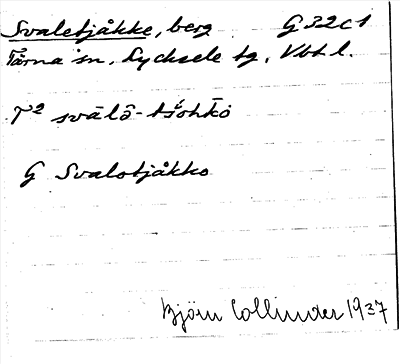 Svaletjåkke, berg G32C1
Tärna sn, Lycksele lg, Vbt l.
T² svālō-tšo̍hkō
G Svalotjåkko
Björn Collinder 1937